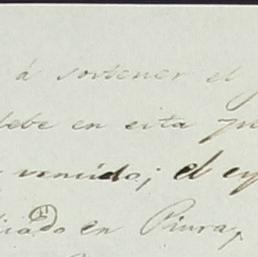 á sostener el
debe en esta
vencido; el
en Piura,